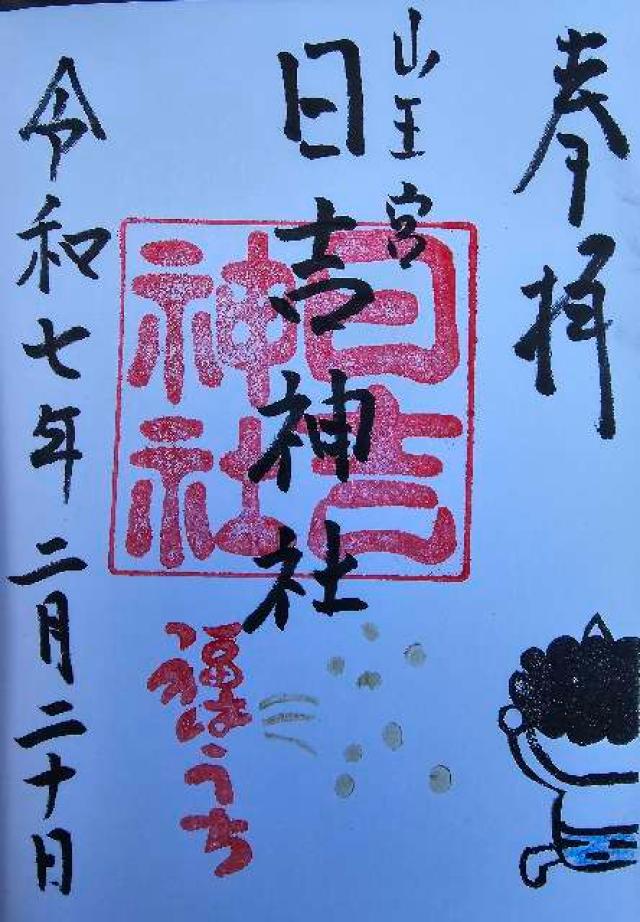 奉拝
山王宮
日吉神社
日吉
神社
福はうち
令和七年二月二十日